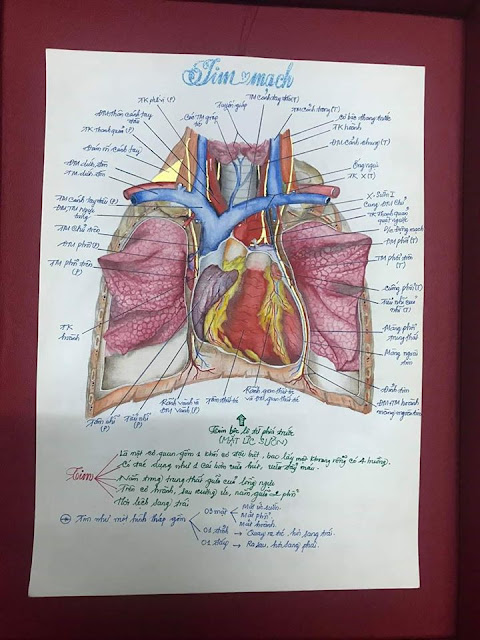 Tim mạch
TK phế vị (P)
ĐM thân cánh tay
đầu
TK thanh quản (P)
Đám rối cánh tay
ĐM dưới đòn
TM dưới đòn
TM cánh tay đầu (P)
ĐM, TM ngực
trong
TM chủ trên
ĐM phổi (P)
TM phổi trên
(P)
TK
hoành
Tuyến giáp
TM cảnh trong (T)
Cơ bậc thang trước
TK hoành
ĐM cảnh chung (T)
Ống ngực
TK X (T)
X. Sườn I
Cung ĐM Chủ
TK thanh quản
quặt ngược
D/c động mạch
ĐM phổi (T)
TM phổi trên
(T)
cuống phổi (T)
Tiểu nhĩ của
nhĩ (T)
Màng phổi
trung thất
Màng ngoài
tim
Đỉnh tim
ĐM+TM hoành
màng ngoài tim
Tâm nhĩ
Tiểu nhĩ
(P)
Rãnh vành và
ĐM vành (P)
Tâm thất
Rãnh gian thất tr
và ĐM gian thất tr
Tim bộc lộ từ phía trước
(MẶT ỨC SƯỜN)
Tim
Là một cơ quan gồm 1 khối cơ đặc biệt, bao lấy một khoang rỗng có 4 buồng.
Có tác dụng như 1 cái bơm vừa hút, vừa đẩy máu.
Nằm trong trung thất giữa của lồng ngực
Trên cơ hoành, sau xương ức, nằm giữa 2 phổi
Hơi lệch sang trái
Tim như một hình tháp gồm
03 mặt
Mặt ức sườn.
Mặt phổi.
Mặt hoành.
01 đỉnh → Quay ra trc, hơi sang trái.
01 đáy → Ra sau, hơi sang phải.